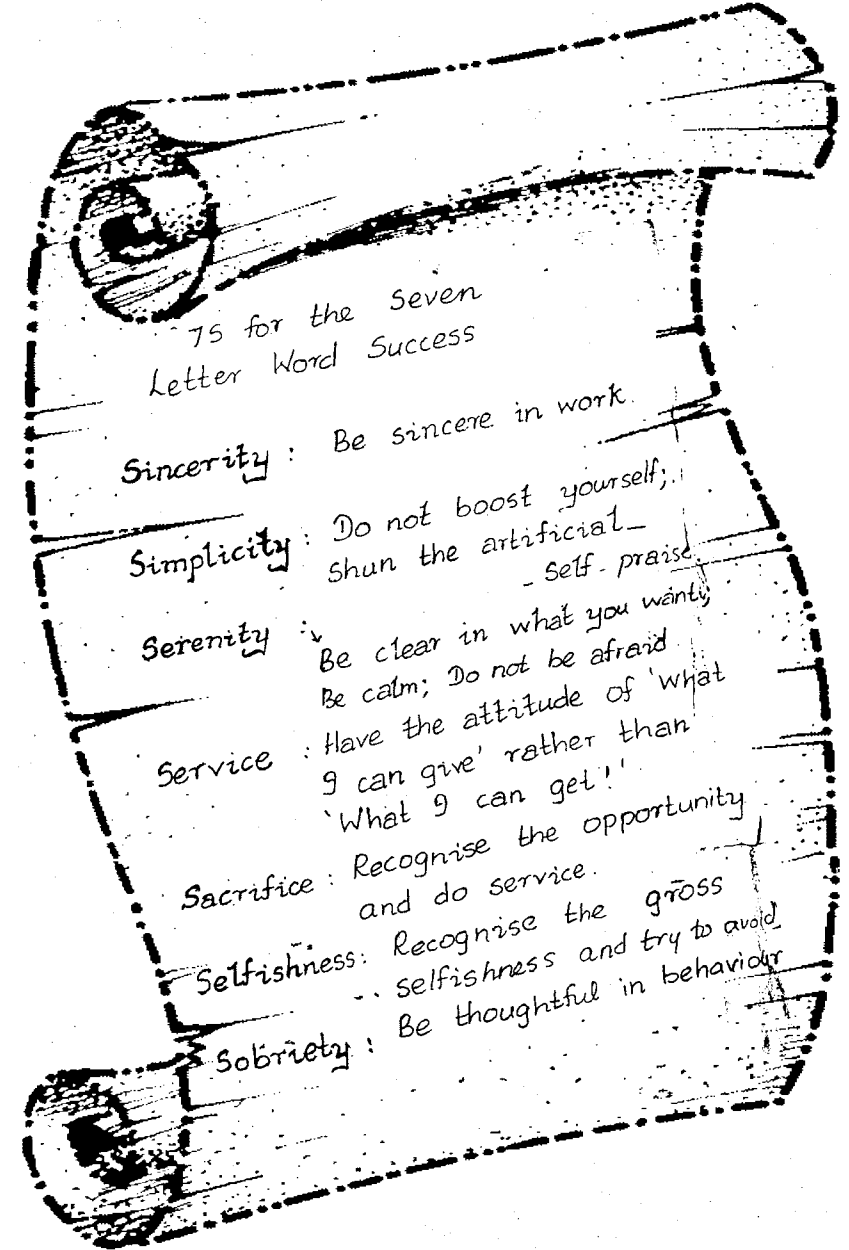 7S for the Seven
Letter Word Success
Sincerity : Be sincere in work.
Simplicity : Do not boost yourself;
Shun the artificial -
- Self - praise.
Serenity :
Be clear in what you want;
Be calm; Do not be afraid
Service : Have the attitude of 'What
I can give' rather than
'What I can get!'
Sacrifice : Recognise the opportunity
and do service.
Selfishness : Recognise the gross
selfishness and try to avoid
Sobriety : Be thoughtful in behaviour